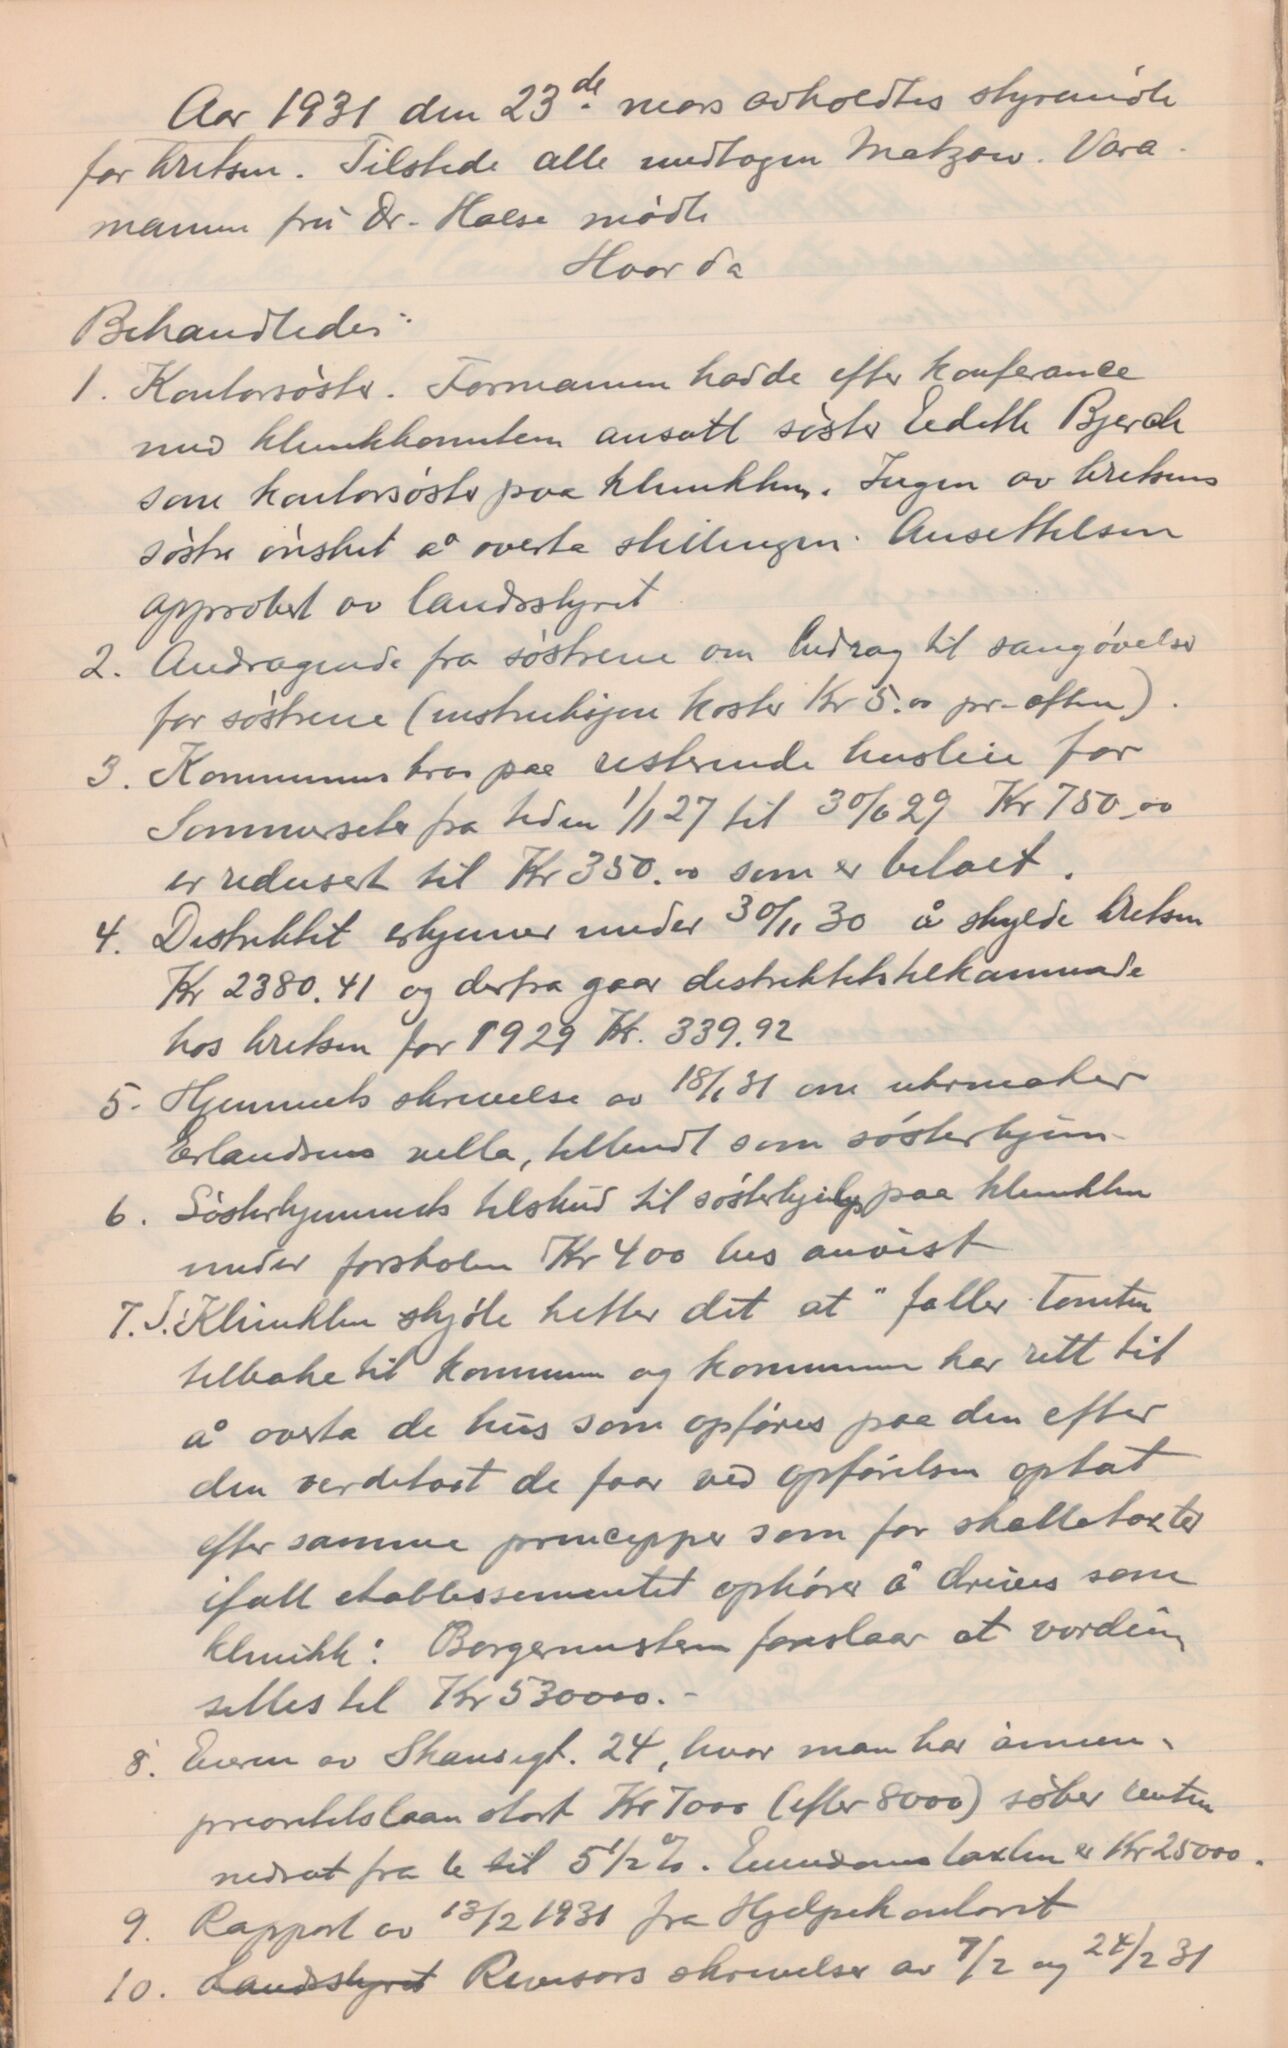 Aar 1931 den 23de mars avholdtes styremöte
for kretsen. Tilstede alle undtagen Matzow. Vara-
mannen frü Dr. Halse mödte
Hvor da
Behandledes:
1. Kontorsöster. Formannen hadde efter konferance
med klinikkomiteen ansatt söster Eedith Bjerck
som kontorsöster paa klinikken. Ingen av kretsens
söstre önsket å overta stillingen. Ansettelsen
approbert av landsstyret
2. Andragende fra söstrene om bidrag til sangövelser
for söstrene (instruksjon koster Kr 5.00 pr. aften).
3. Kommunens krav paa resterende husleie for
Sommerseter fra tiden 1/1 27 til 30/6 29 Kr 750.00
er redusert til Kr 350.00 som er betalt.
4. Distriktet erkjenner under 30/11 30 å skylde kretsen
Kr 2380.41 og derfra gaar distriktets tilkommende
hos kretsen for 1929 Kr. 339.92
5. Hjemmets skrivelse av 18/1 31 om uhrmaker
Erlandsens villa, tilbudt som sösterhjem
6. Sösterhjemmets tilskud til sösterhjelp paa klinikken
under forskolen Kr 400 bes anvist
7. I Klinikken skjöte hetter det at " faller tomten
tilbake til kommunen og kommunen har rett til
å overta de hus som opföres paa den efter
den verditaxt de faar ved opförelsen optat
efter samme principper som for skattetaxter
ifall etablissementet ophörer å drives som
klinikk: Borgermesteren foreslaar at verdien
settes til Kr 530000.-
8. Eieren av Skansegt. 24, hvor man har annen-
prioritetslaan stort Kr 7000 (efter 8000) söker renten
nedsat fra 6 til 5 1/2 %. Eiendomstaxten er Kr 25000.
9. Rapport av 13/2 1931 fra Hjelpekontoret
10. Landsstyret Revisors skrivelser av 7/2 og 24/2 31